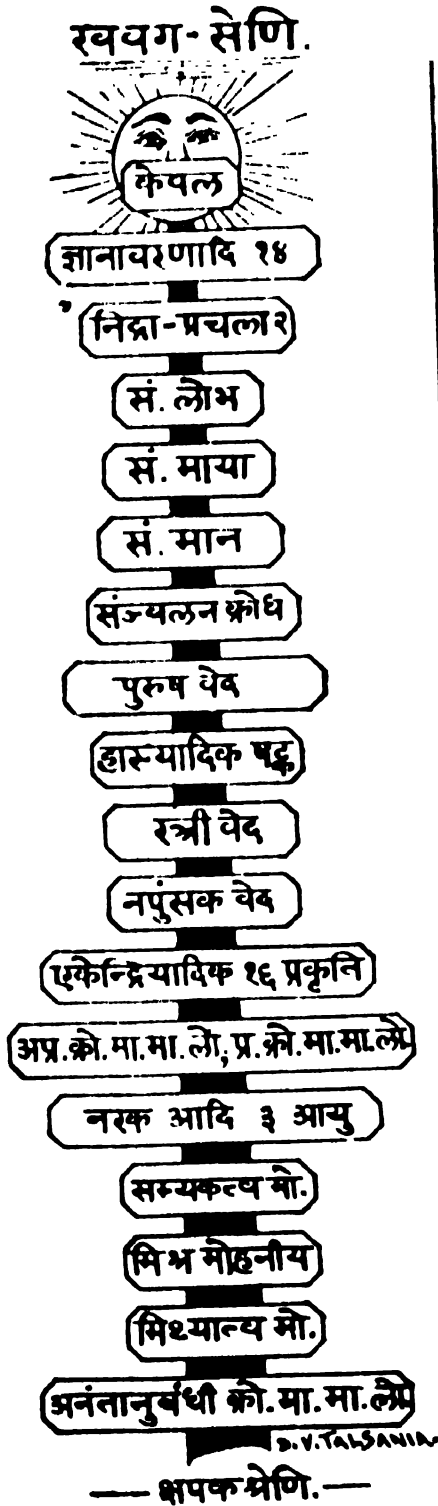 खवग-सेणि.
केवल
ज्ञानावरणादि १४
निद्रा-प्रचला २
सं. लोभ
सं. माया
सं. मान
संज्वलन क्रोध
पुरुष वेद
हास्यादिक षट्क
स्त्री वेद
नपुंसक वेद
एकेन्द्रियादिक १६ प्रकृति
अप्र.क्रो.मा.मा.लो; प्र.क्रो.मा.मा.लो.
नरक आदि ३ आयु
सम्यकत्व मो.
मिश्र मोहनीय
मिथ्यात्व मो.
अनंतानुबंधी क्रो.मा.मा.लो
D.V.TALSANIA.
क्षपक श्रेणि.